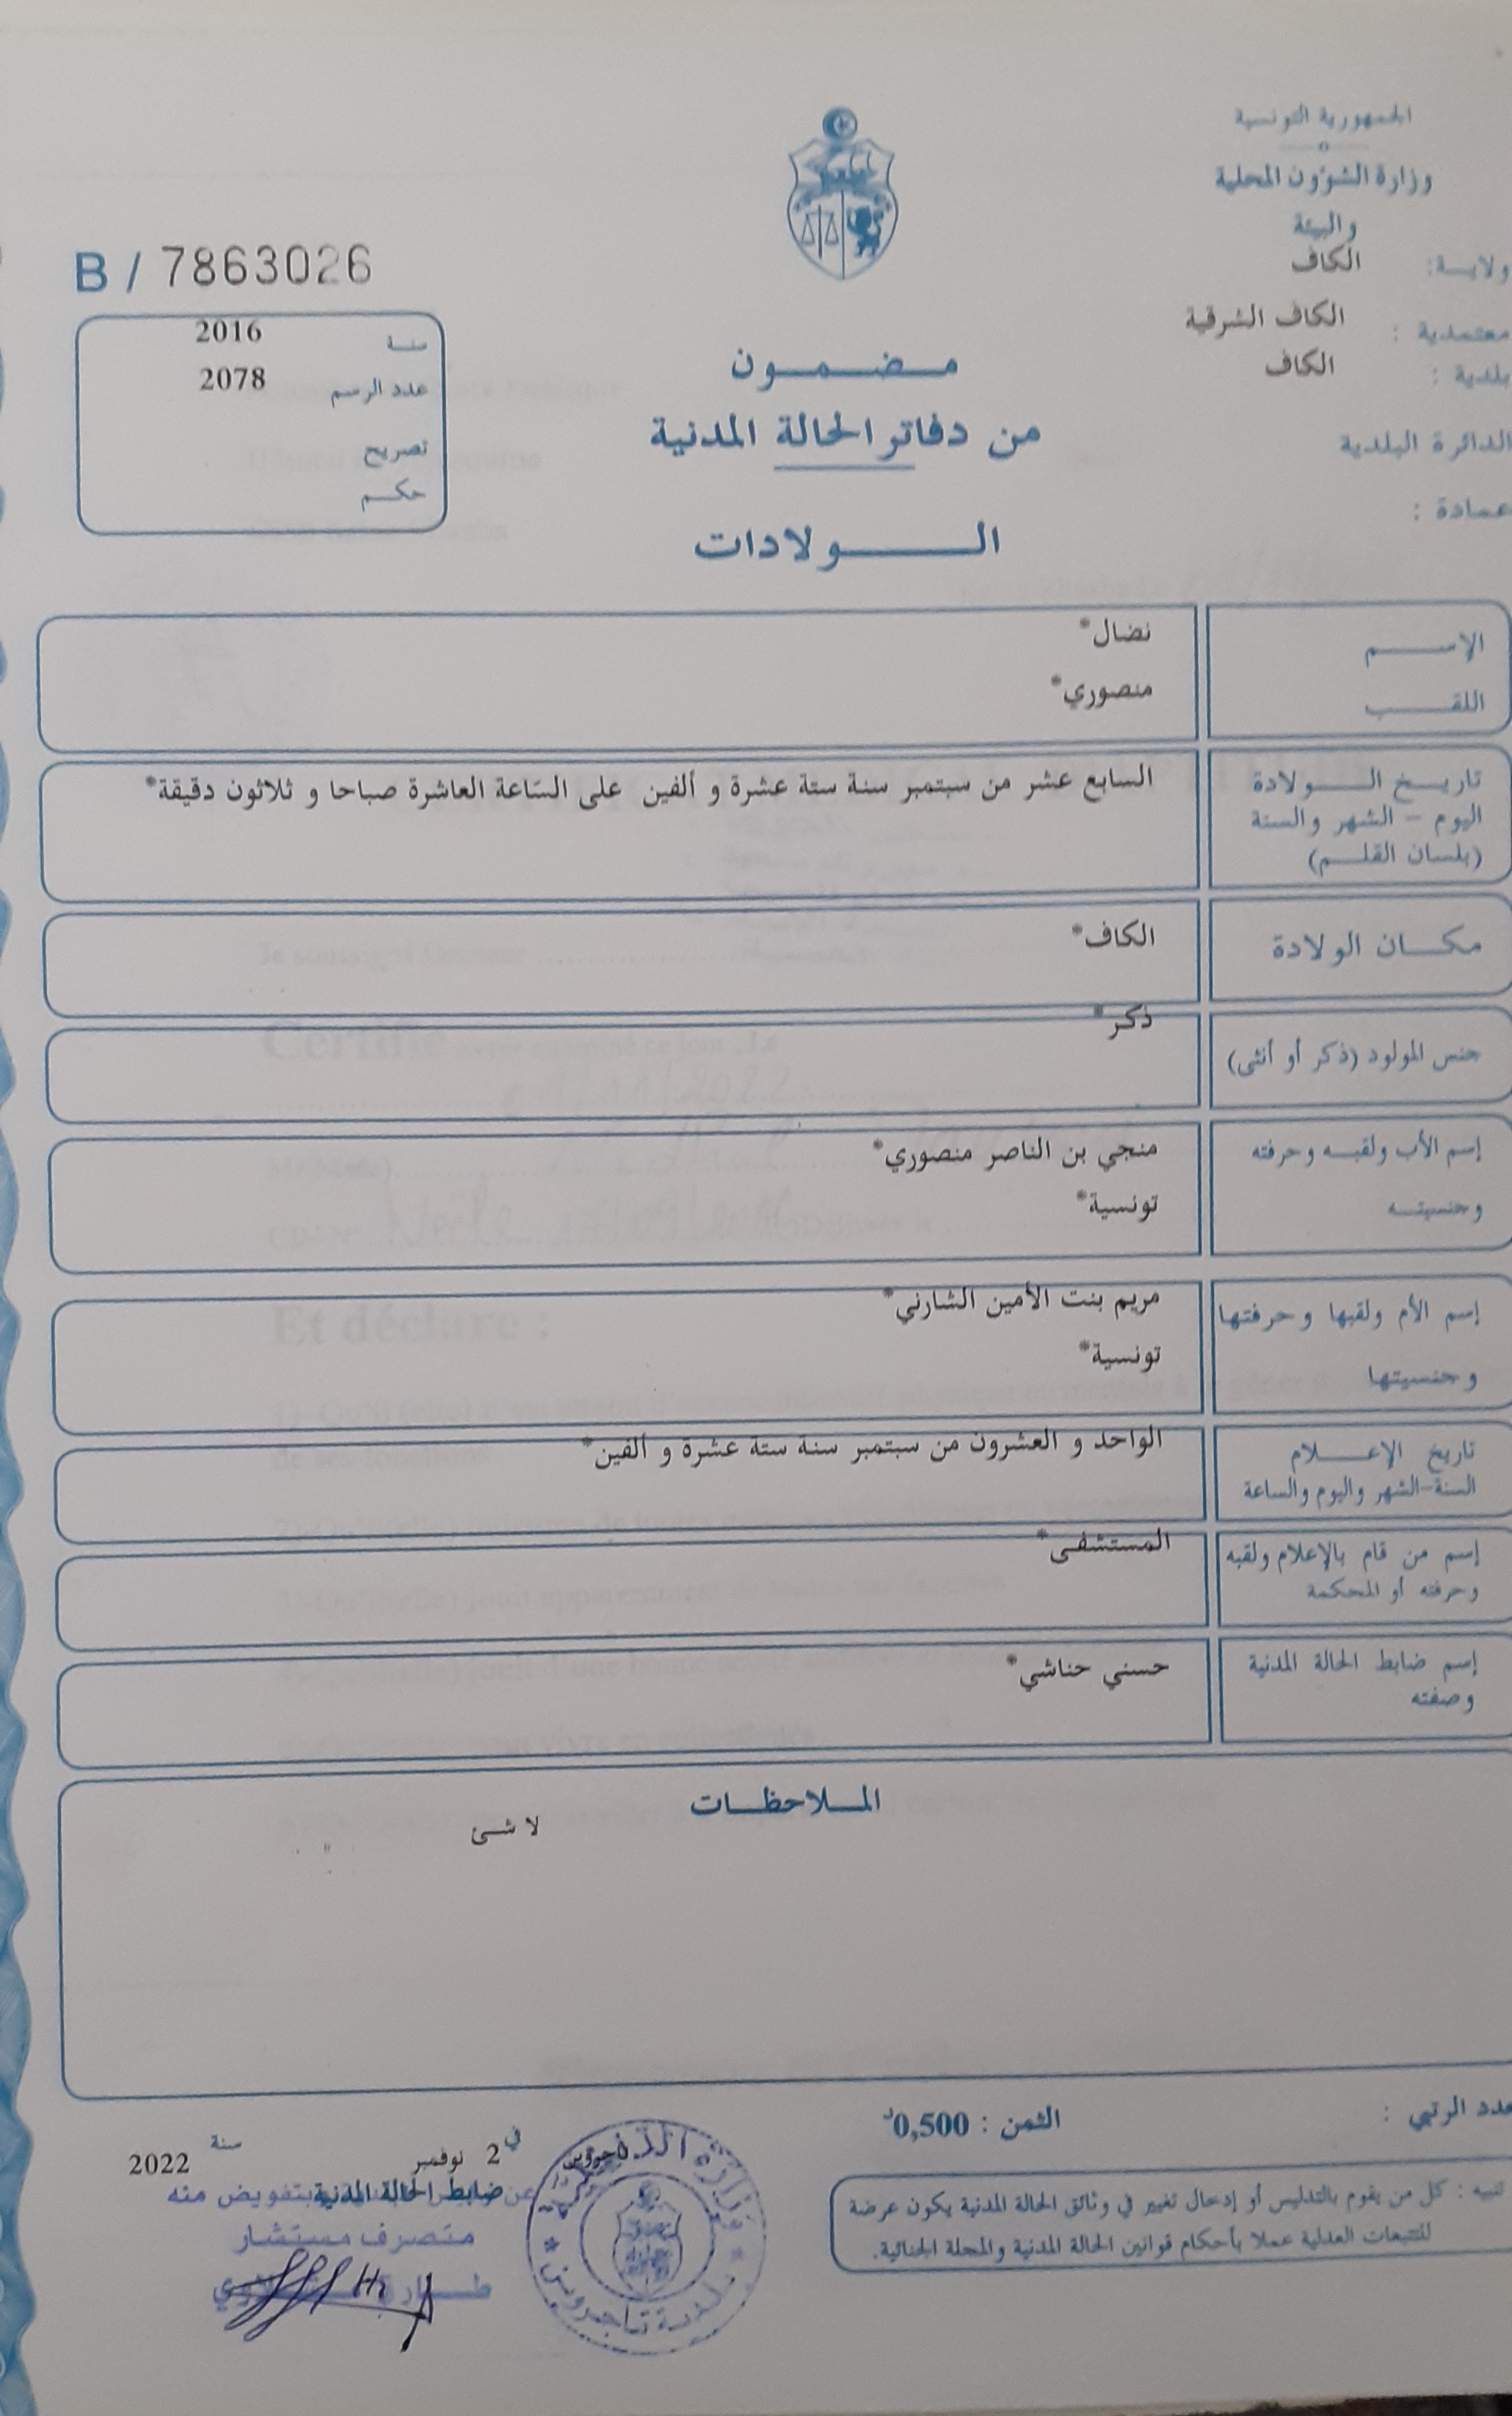 الجمهورية التونسية
وزارة الشؤون المحلية
والبيئة
ولايـــة: الكاف
معتمدية : الكاف الشرقية
بلدية : الكاف
الدائرة البلدية
عمادة :
مـــضـــمـــون
من دفاتر الحالة المدنية
الـــــولادات
B / 7863026
سنـة 2016
عدد الرسم 2078
تصريح
حكـم
الإســـم نضال*
اللقـــب منصوري*
تاريـــخ الـــولادة السابع عشر من سبتمبر سنة ستة عشرة و ألفين على السّاعة العاشرة صباحا و ثلاثون دقيقة*
اليوم – الشهر والسنة
(بلسان القلـم)
مكـــان الولادة الكاف*
جنس المولود (ذكر أو أنثى) ذكر*
إسم الأب ولقبـه وحرفته منجي بن الناصر منصوري*
وجنسيتـه تونسية*
إسم الأم ولقبها وحرفتها مريم بنت الأمين الشارني*
وجنسيتها تونسية*
تاريخ الإعــــلام الواحد و العشرون من سبتمبر سنة ستة عشرة و ألفين*
السنة-الشهر واليوم والساعة
إسم من قام بالإعلام ولقبه المستشفى*
وحرفته أو المحكمة
إسم ضابط الحالة المدنية حسني حناشي*
وصفته
المـــلاحظـــات
لا شئ
عدد الرتبي :
الثمن : 0,500د
في 2 نوفمبر سنة 2022
ضابط الحالة المدنية
بتفويض منه
متصرف مستشار
بلدية تاجروين
تنبيه : كل من يقوم بالتدليس أو إدخال تغيير في وثائق الحالة المدنية يكون عرضة
للتتبعات العدلية عملا بأحكام قوانين الحالة المدنية والمجلة الجنائية.